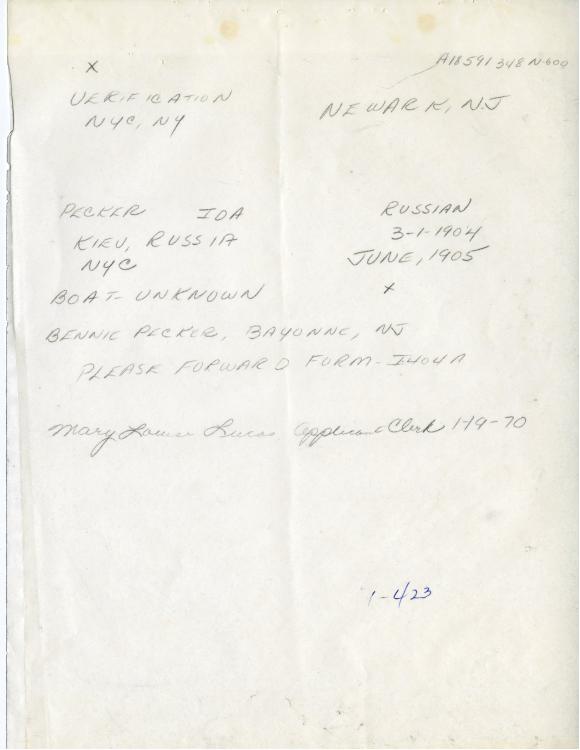 x
A18591348 N-600
VERIFICATION
NYC, NY
NEWARK, NJ
PECKER IDA
RUSSIAN
KIEV, RUSSIA
3-1-1904
NYC
JUNE, 1905
BOAT- UNKNOWN
x
BENNIE PECKER, BAYONNE, NJ
PLEASE FORWARD FORM-I404A
Mary Louise Lucas Applicant Clerk 1-19-70
1-4/23